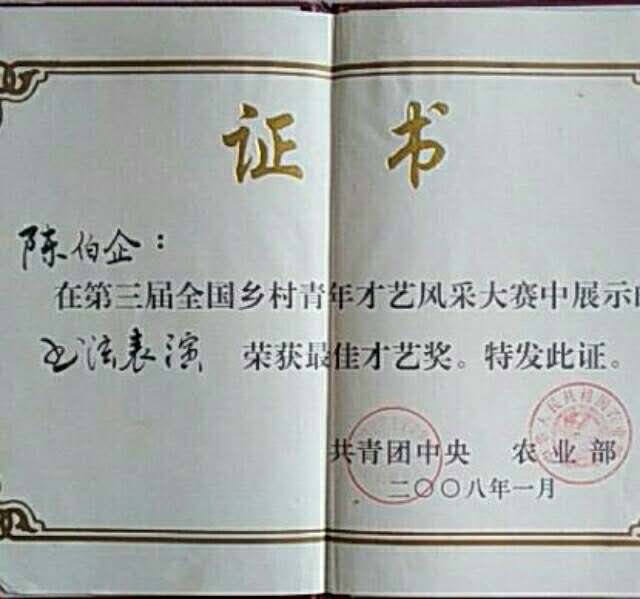 证书
陈伯企：
在第三届全国乡村青年才艺风采大赛中展示
书法表演 荣获最佳才艺奖。特发此证。
共青团中央 农业部
二〇〇八年一月